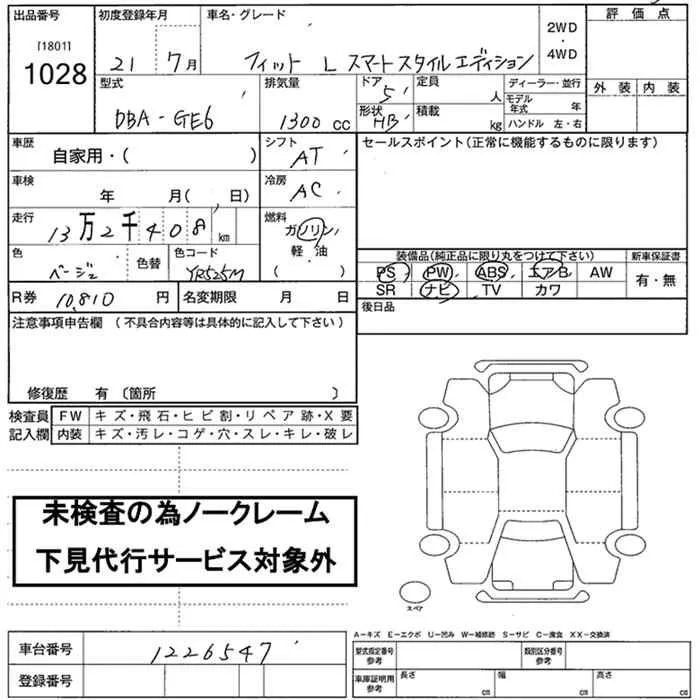 出品番号 初度登録年月 車名・グレード 評価点
[1801]
1028 21 7月 フィット L スマートスタイルエディション 2WD・4WD
型式 排気量 ドア 定員 ディーラー・並行 外装 内装
DBA-GE6 1300 cc 5 人 モデル年式 年
形状 積載 ハンドル 左・右
HB kg
車歴 シフト セールスポイント(正常に機能するものに限ります)
自家用・( ) AT
車検 冷房
年 月( 日) AC
走行 燃料
13万2千408 km ガソリン
軽・油
( )
色 色替 色コード 装備品(純正品に限り丸をつけて下さい) 新車保証書
ベージュ YR525M PS PW ABS エアB AW 有・無
R券 10,810 円 名変期限 月 日 SR ナビ TV カワ
注意事項申告欄 (不具合内容等は具体的に記入して下さい) 後日品
修復歴 有 〔箇所 〕
検査員 FW キズ・飛石・ヒビ割・リペア跡・X要
記入欄 内装 キズ・汚レ・コゲ・穴・スレ・キレ・破レ
未検査の為ノークレーム
下見代行サービス対象外
スペア
A-キズ E-エクボ U-凹み W-補修跡 S-サビ C-腐食 XX-交換済
車台番号 1226547 型式指定番号 参考 類別区分番号 参考
登録番号 車庫証明用 参考 長さ cm 幅 cm 高さ cm